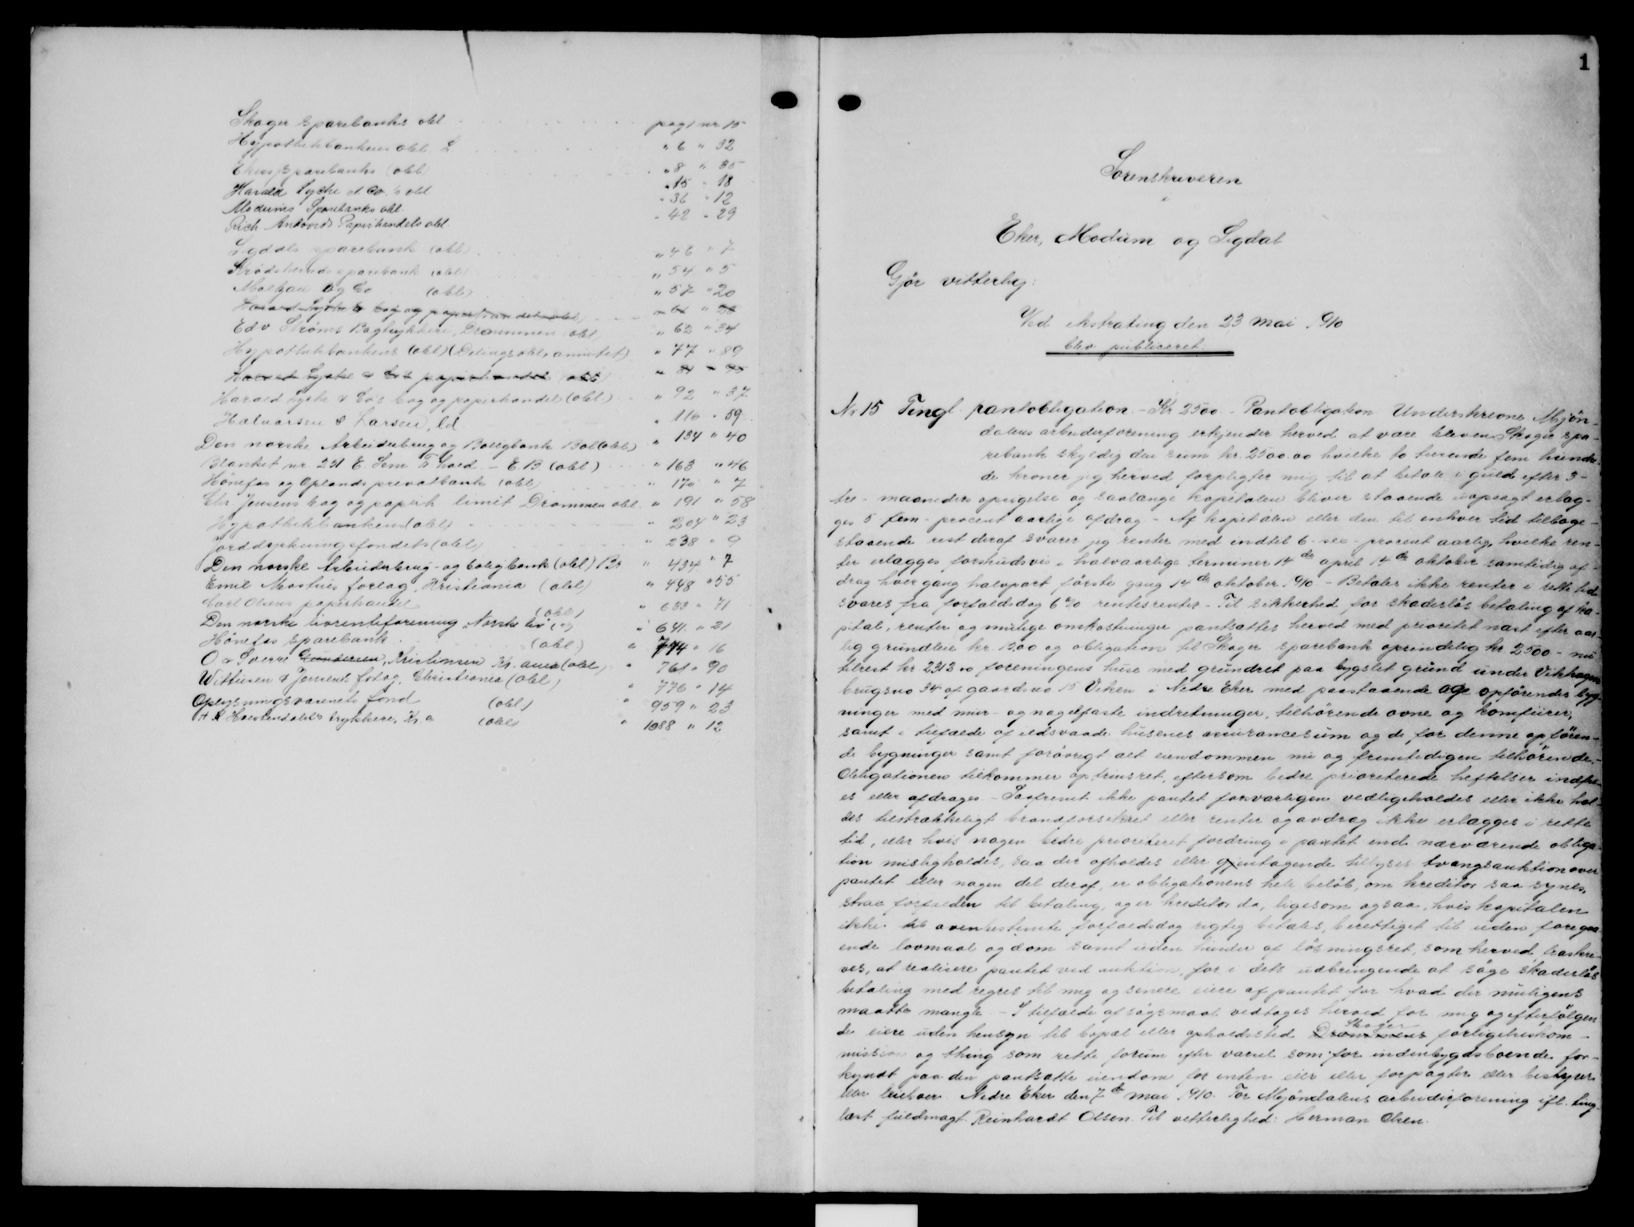 Skoger sparebanks obl. pag 1 nr 15
Hypothekbankens obl. " 6 " 32
Ekers sparebanks (obl) " 8 " 35
Harald Lyche & Co.s obl " 15 " 18
Modums Sparebanks obl. " 36 " 12
Rich. Andvords Papirhandels obl. " 42 " 29
Sigdals sparebank (obl) " 46 " 7
Krødsherreds sparebank (obl) " 54 " 5
og Co (obl) " 57 " 20
Harald Lyche & bog og papirhandel obl
Edv Strøms Bogtrykkeri, Drammen (obl) " 62 " 34
Hypothekbankens (obl) (Delingsobl, annuitet) " 77 " 89
Harald Lyche & Co's papirhandel (obl)
Harald Lyche & Co's bog og papirhandel (obl) " 92 " 37
Halvorsen & Larsen, ld " 110 " 89
Den norske Arbeiderbrug og Boligbank Bol(obl) " 134 " 40
Blanket nr. 231 E. Sem Fr.hald – E B (obl) " 163 " 46
Hönefos og Oplands privatbank (obl) " 170 " 7
Chr Jensens bog og papirh limit Drammen obl. " 191 " 58
Hypothekbankens (obl) " 204 " 23
Jorddyrkningsfondets (obl) " 238 " 9
Den norske Arbeiderbrug- og boligbank (obl) Br " 434 " 7
Emil Moestues forlag, Kristiania (obl) " 448 " 55
Carl Olsens papirhandel (obl) " 633 " 71
Den norske livrenteforening "Norske liv" (") " 641 " 21
Hönefos sparebank (obl) " 744 " 16
O & Sverre Gundersen, Kristensen Kr. (obl) " 761 " 90
Withusen & Jensens forlag, Christiania (obl) " 776 " 14
Oplysningsvæsenets fond (obl) " 959 " 23
H. K. trykkeri, Kr a (obl) " 1088 " 12
1
Sorenskriveren
i
Eker, Modum og Sigdal
Gjör vitterlig:
Ved ekstrating den 23 mai 1910
blev publiceret:
Nr 15 Tingl. pantobligation. – Kr 2500 – Pantobligation Underskrevne Mjön-
dalens arbeiderforening erkjender herved at være bleven Skoger spa-
rebank skyldig den sum kr. 2500.00 hvilke to tusende fem hundre-
de kroner jeg herved forpligter mig til at betale i guld efter 3 –
tre – maaneders opsigelse og saalænge kapitalen bliver staaende uopsagt erlæg-
ges 5 fem – procent aarlige afdrag – Af kapitalen eller den til enhver tid tilbage-
staaende rest deraf svarer jeg renter med indtil 6 – sex – procent aarlig, hvilke ren-
ter erlægges forskudsvis i halvaarlige terminer 14de april 14de oktober samtidig af-
drag hver gang halvpart förste gang 14de oktober 1910 – Betales ikke renter i rette tid
svares fra forfaldsdag 6% rentesrenter – Til sikkerhed for skadeslös betaling af ka-
pital, renter og mulige omkostninger pantsættes herved med prioritet næst efter aar-
lig grundleie kr. 1200 og obligation til Skoger sparebank oprindelig kr 2500 – nu
tilrest kr. 2313.00 foreningens huse med grundret paa bygslet grund under Vikhagen
brugsno 34 af gaardsno 15 Viken i Nedre Eker med paastaaende og opförendes byg-
ninger med mur- og nagelfaste indretninger, tilhörende ovne og komfurer,
samt i tilfælde af ildsvaade husenes assurancesum og de for denne opfören-
de bygninger samt forövrigt alt eiendommen nu og fremtidigen tilhörende. –
Obligationen tilkommer optrinsret, eftersom bedre prioriterede heftelser indfri-
es eller afdrages – Saafremt ikke pantet forsvarligen vedligeholdes eller ikke hol-
des tilstrækkeligt brandforsikret eller renter og avdrag ikke erlægges i rette
tid, eller hvis nogen bedre prioriteret fordring i pantet end nærværende obliga-
tion misligholdes, saa der afholdes eller gjentagende tillyses tvangsauktion over
pantet eller nogen del deraf, er obligationens hele belöb, om kreditor saa synes,
strax forfalden til betaling, og er kreditor da, ligesom ogsaa, hvis kapitalen
ikke til ovenbestemte forfaldsdag rigtig betales, berettiget til uden foregaa-
ende lovmaal og dom samt uden hinder af lösningsret, som herved fraskri-
ves, at realisere pantet ved auktion, for i dets udbringende at söge skadeslös
betaling med regres til mig og senere eiere af pantet for hvad der muligens
maatte mangle – I tilfælde af sögsmaal vedtages herved for mig og efterfölgen
de eiere uden hensyn til bopæl eller opholdssted Drammens Skoger forligelseskom-
mission og thing som rette forum efter varsel som for indenbygdsboende for-
kyndt paa den pantsatte eiendom for enten eier eller forpagter eller bestyrer
eller leieboer. Nedre Eker den 7de mai 1910. For Mjöndalens arbeiderforening ifl. ting-
læst fuldmagt Reinhardt Olsen Til vitterlighed: Herman Olsen.